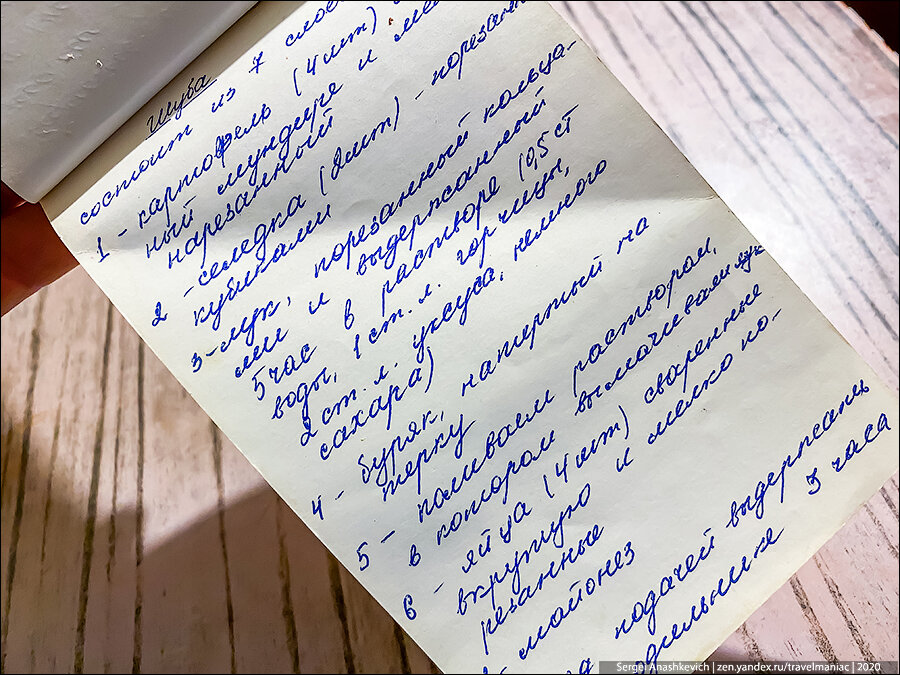 Шуба
состоит из 7 слое
1 - картофель (4 шт)
ный мундире и ме
нарезанный
2 - селедка (2шт) - порезан
кубиками
3 - лук, порезанный кольца-
ми и выдержанный
5 час в растворе (0,5 ст
воды, 1 ст. л. горчицы,
2 ст. л. уксуса, немного
сахара)
4 - буряк, натертый на
терку
5 - поливаем раствором,
в котором вымачивали лук
6 - яйца (4 шт) сваренные
вкрутую и мелко по-
резанные
- майонез
д подачей выдержать
одильнике 3 часа
Sergei Anashkevich | zen.yandex.ru/travelmaniac | 2020